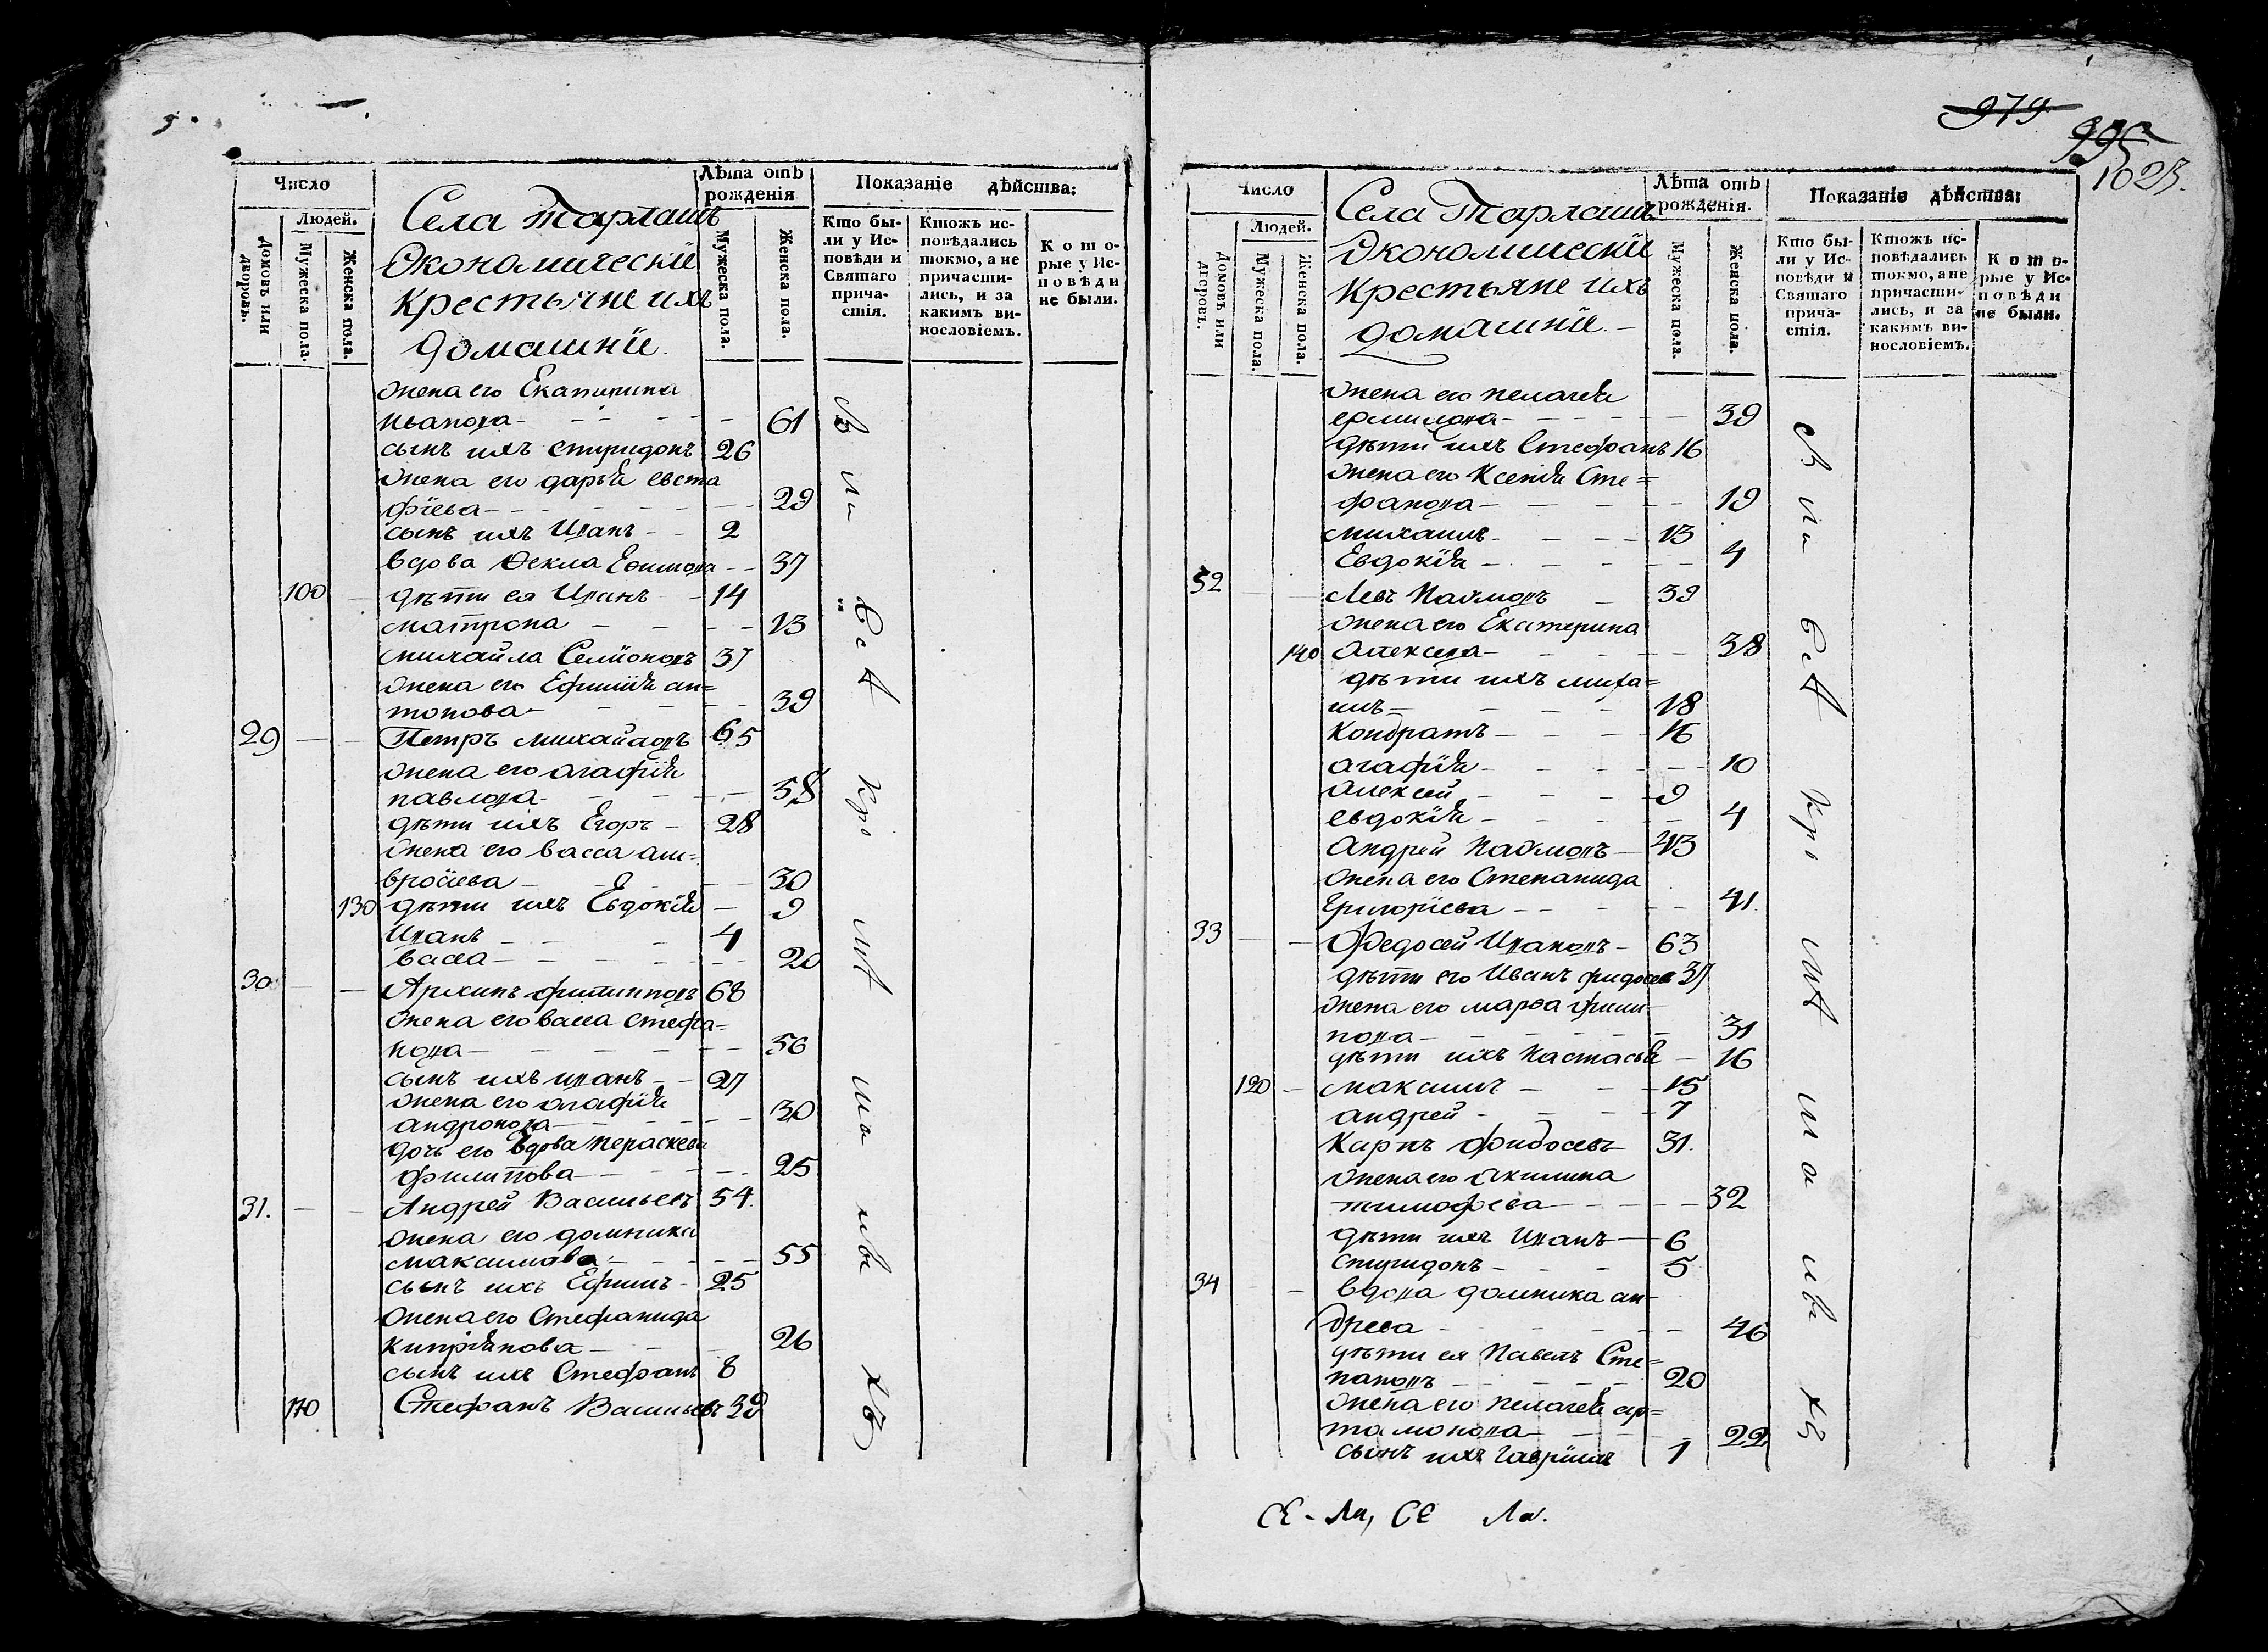 979
995
1023.
Число
Людей.
Домовъ или дворовъ.
Мужеска пола.
Женска пола.
Села Тарлашъ
Экономическїи
Крестьяне ихъ
домашнїи.
Лѣта отъ рожденія
Мужеска пола.
Женска пола.
Показаніе дѣйства:
Кто бы-
ли у Ис-
повѣди и
Святаго
прича-
стія.
Ктожъ ис-
повѣдались
токмо, а не
причасти-
лись, и за
какимъ ви-
нословіемъ.
Кото-
рые у Ис-
повѣди
не были.
жена его Екатирина
Иванова - - - - 61
сынъ ихъ Спиридонъ 26
жена его дарья евста
фїева - - - - 29
сынъ ихъ Иванъ - - 2
вдова Фекла Ефимова - - 37
100 - дѣти ея Иванъ - 14
матрона - - - - 13
михайла Семїоновъ 37
жена его Ефимїя ан=
тонова - - - - 39
29 - - Петръ михайловъ 65
жена его агафїя
павлова - - - - 58
дѣти ихъ Егоръ - 28
жена его васса ам=
вросїева - - - - 30
130 дѣти ихъ Евдокїя - 9
Иванъ - - - 4
васса - - - - 20
30 - - Архипъ филиповъ 68
жена его васса стефа=
нова - - - - 56
сынъ ихъ иванъ - - 27
жена его агафїя
андронова - - - - 30
дочь его вдова пераскева
филипова - - - - 25
31. - - Андрей Васильевъ 54.
жена его домника
максимова - - - - 55
сынъ ихъ Ефимъ - 25
жена его Стефанида
киприянова - - - 26
сынъ ихъ Стефанъ 8
110 Стефанъ Васильевъ 39
Число
Людей.
Домовъ или дворовъ.
Мужеска пола.
Женска пола.
Села Тарлашъ
Экономическїи
Крестьяне ихъ
домашнїи. -
Лѣта отъ рожденія.
Мужеска пола.
Женска пола.
Показаніе дѣйства:
Кто бы-
ли у Ис-
повѣди и
Святаго
прича-
стія.
Ктожъ ис-
повѣдались
токмо, а не
причасти-
лись, и за
какимъ ви-
нословіемъ.
Кото-
рые у Ис-
повѣди
не были.
жена его пелагея
ермилова - - - - 39
дѣти ихъ Стефанъ 16
жена его Ксенїя Сте=
фанова - - - - 19
михаилъ - - - 13
Евдокїя - - - - 4
32 - - Левъ Пахмовъ - 39
жена его Екатерина
140 Алексева - - - - 38
дѣти ихъ миха=
илъ - - - 18
Кондратъ - - - 16
агафїя - - - - 10
алексей - - - 9
евдокїя - - - - 4
андрей Пахмовъ - 43
жена его Степанида
Григорїева - - - - 41.
33 - - Федосей Ивановъ - 63
дѣти его Иванъ фидосев 37
жена его марфа фили-
пова - - - - 31
дѣти ихъ Настасья - 16
120 - максимъ - - - 15
андрей - - - 7
Карпъ фидосевъ 31.
жена его Акилина
тимофева - - - - 32
дѣти ихъ Иванъ - 6
спиридонъ - - - 5
34 - - вдова домника ан-
древа - - - - 46
дѣти ея Павелъ Сте=
пановъ - - - 20
жена его пелагея ар=
тамонова - - - - 22
сынъ ихъ гаврїилъ 1